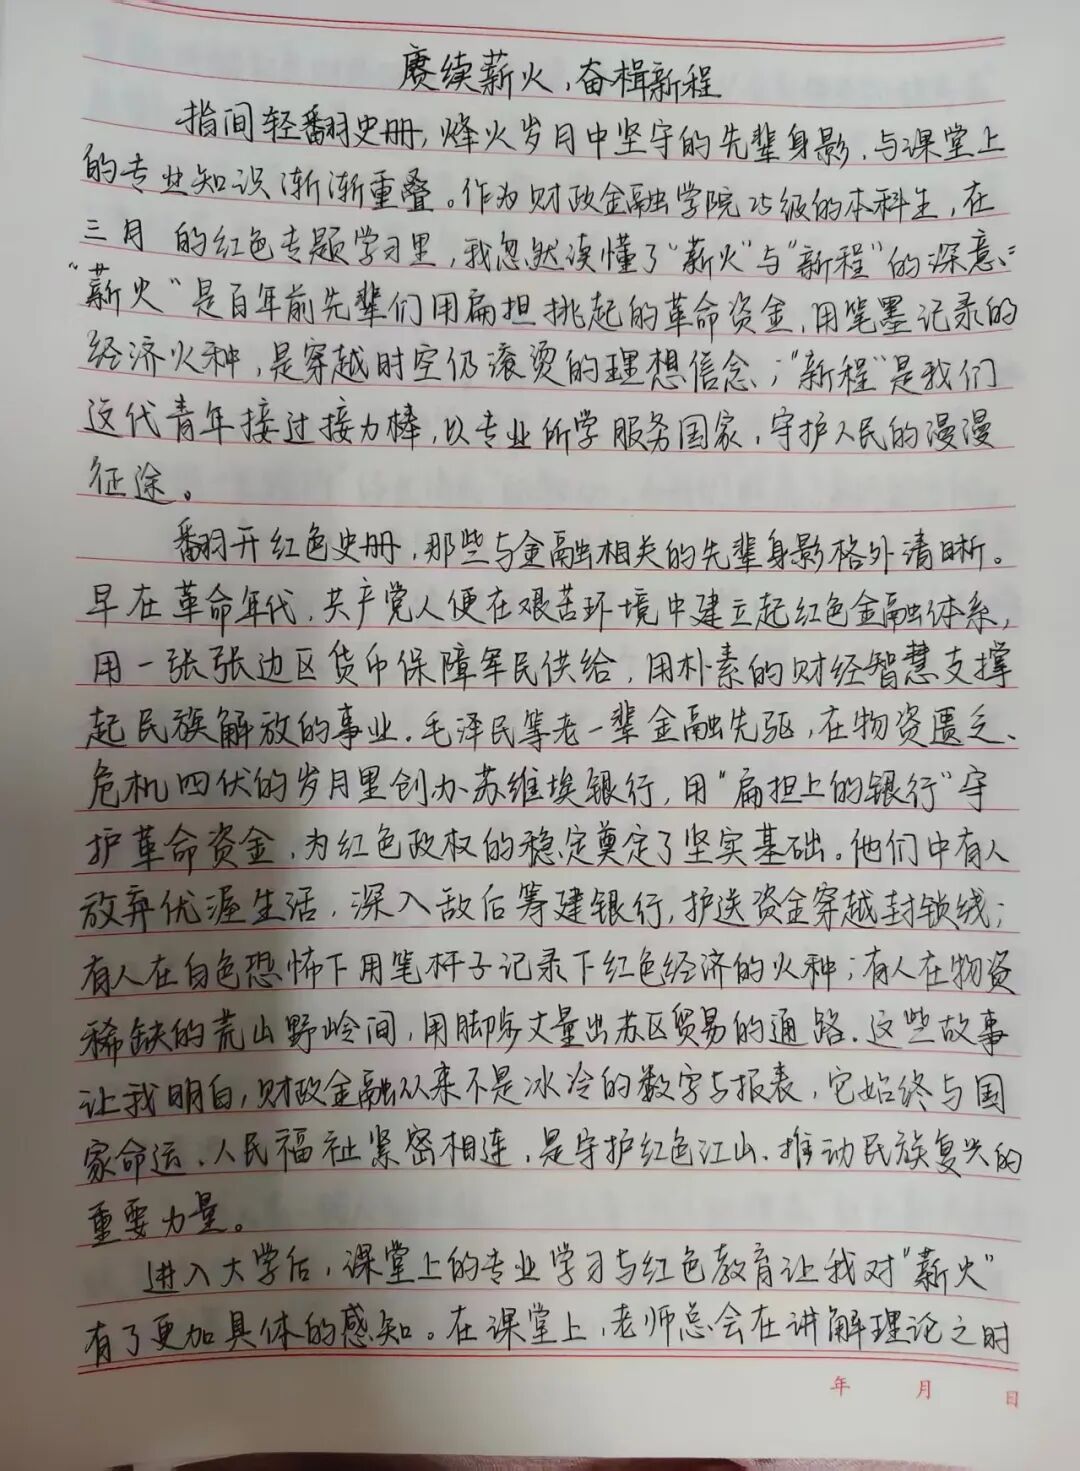 赓续薪火，奋楫新程
指间轻翻史册，烽火岁月中坚守的先辈身影，与课堂上
的专业知识渐渐重叠。作为财政金融学院25级的本科生，在
三月 的红色专题学习里，我忽然读懂了“薪火”与“新程”的深意：
“薪火”是百年前先辈们用扁担挑起的革命资金，用笔墨记录的
经济火种，是穿越时空仍滚烫的理想信念；“新程”是我们
这代青年接过接力棒，以专业所学服务国家，守护人民的漫漫
征途。
翻开红色史册，那些与金融相关的先辈身影格外清晰。
早在革命年代，共产党人便在艰苦环境中建立起红色金融体系，
用一张张边区货币保障军民供给，用朴素的财经智慧支撑
起民族解放的事业．毛泽民等老一辈金融先驱，在物资匮乏、
危机四伏的岁月里创办苏维埃银行，用“扁担上的银行”守
护革命资金，为红色政权的稳定奠定了坚实基础。他们中有人
放弃优渥生活，深入敌后筹建银行，护送资金穿越封锁线；
有人在白色恐怖下用笔杆子记录下红色经济的火种；有人在物资
稀缺的荒山野岭间，用脚步丈量出苏区贸易的通路．这些故事
让我明白，财政金融从来不是冰冷的数字与报表，它始终与国
家命运、人民福祉紧密相连，是守护红色江山、推动民族复兴的
重要力量。
进入大学后，课堂上的专业学习与红色教育让我对“薪火”
有了更加具体的感知。在课堂上，老师总会在讲解理论之时
年 月 日